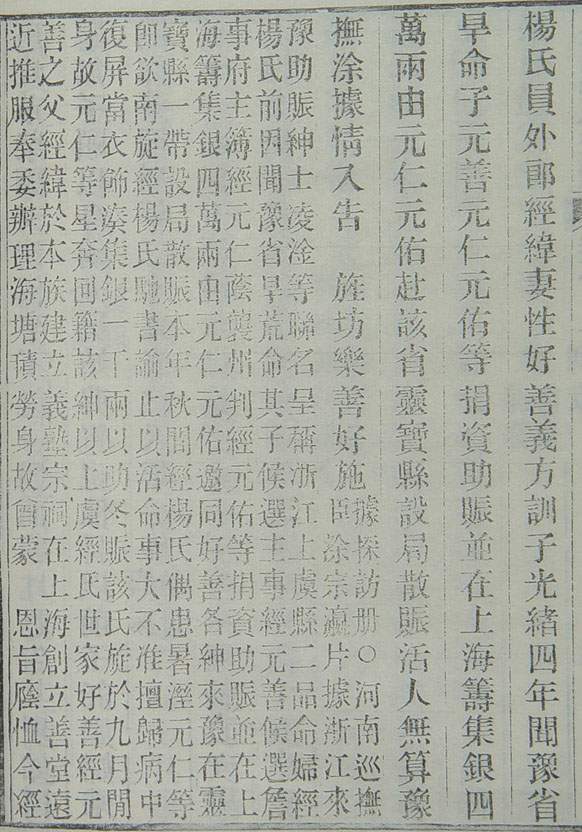 楊氏員外郎經緯妻性好善義方訓子光緒四年聞豫省
旱命子元善元仁元佑等捐資助賑並在上海籌集銀四
萬兩由元仁元佑赴該省靈寶縣設局散賑活人無算豫
撫涂據情入告 旌坊樂善好施
據採訪册○河南巡撫
臣涂宗瀛片據浙江來
豫助賑紳士凌淦等聯名呈稱浙江上虞縣二品命婦經
楊氏前因聞豫省旱荒命其子候選主事經元善候選詹
事府主簿經元仁蔭襲州判經元佑等捐資助賑並在上
海籌集銀四萬兩由元仁元佑邀同好善各紳來豫在靈
寶縣一帶設局散賑本年秋間經楊氏偶患暑溼元仁等
卽欲南旋經楊氏馳書諭止以活命事大不准擅歸病中
復屏當衣飾湊集銀一千兩以助冬賑該氏旋於九月間
身故元仁等星奔回籍該紳以上虞經氏世家好善經元
善之父經緯於本族建立義塾宗祠在上海創立善堂遠
近推服奉委辦理海塘積勞身故曾蒙 恩旨廕恤今經